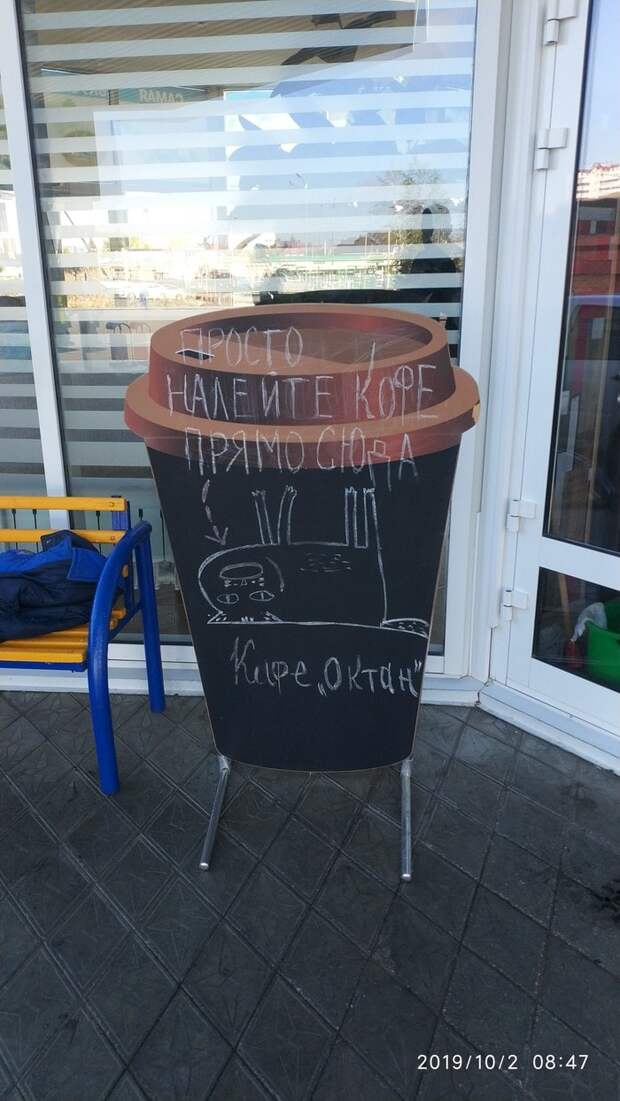 САМАЯ
ПРОСТО
НАЛЕЙТЕ КОФЕ
ПРЯМО СЮДА
Кафе „Октан"
2019/10/2 08:47